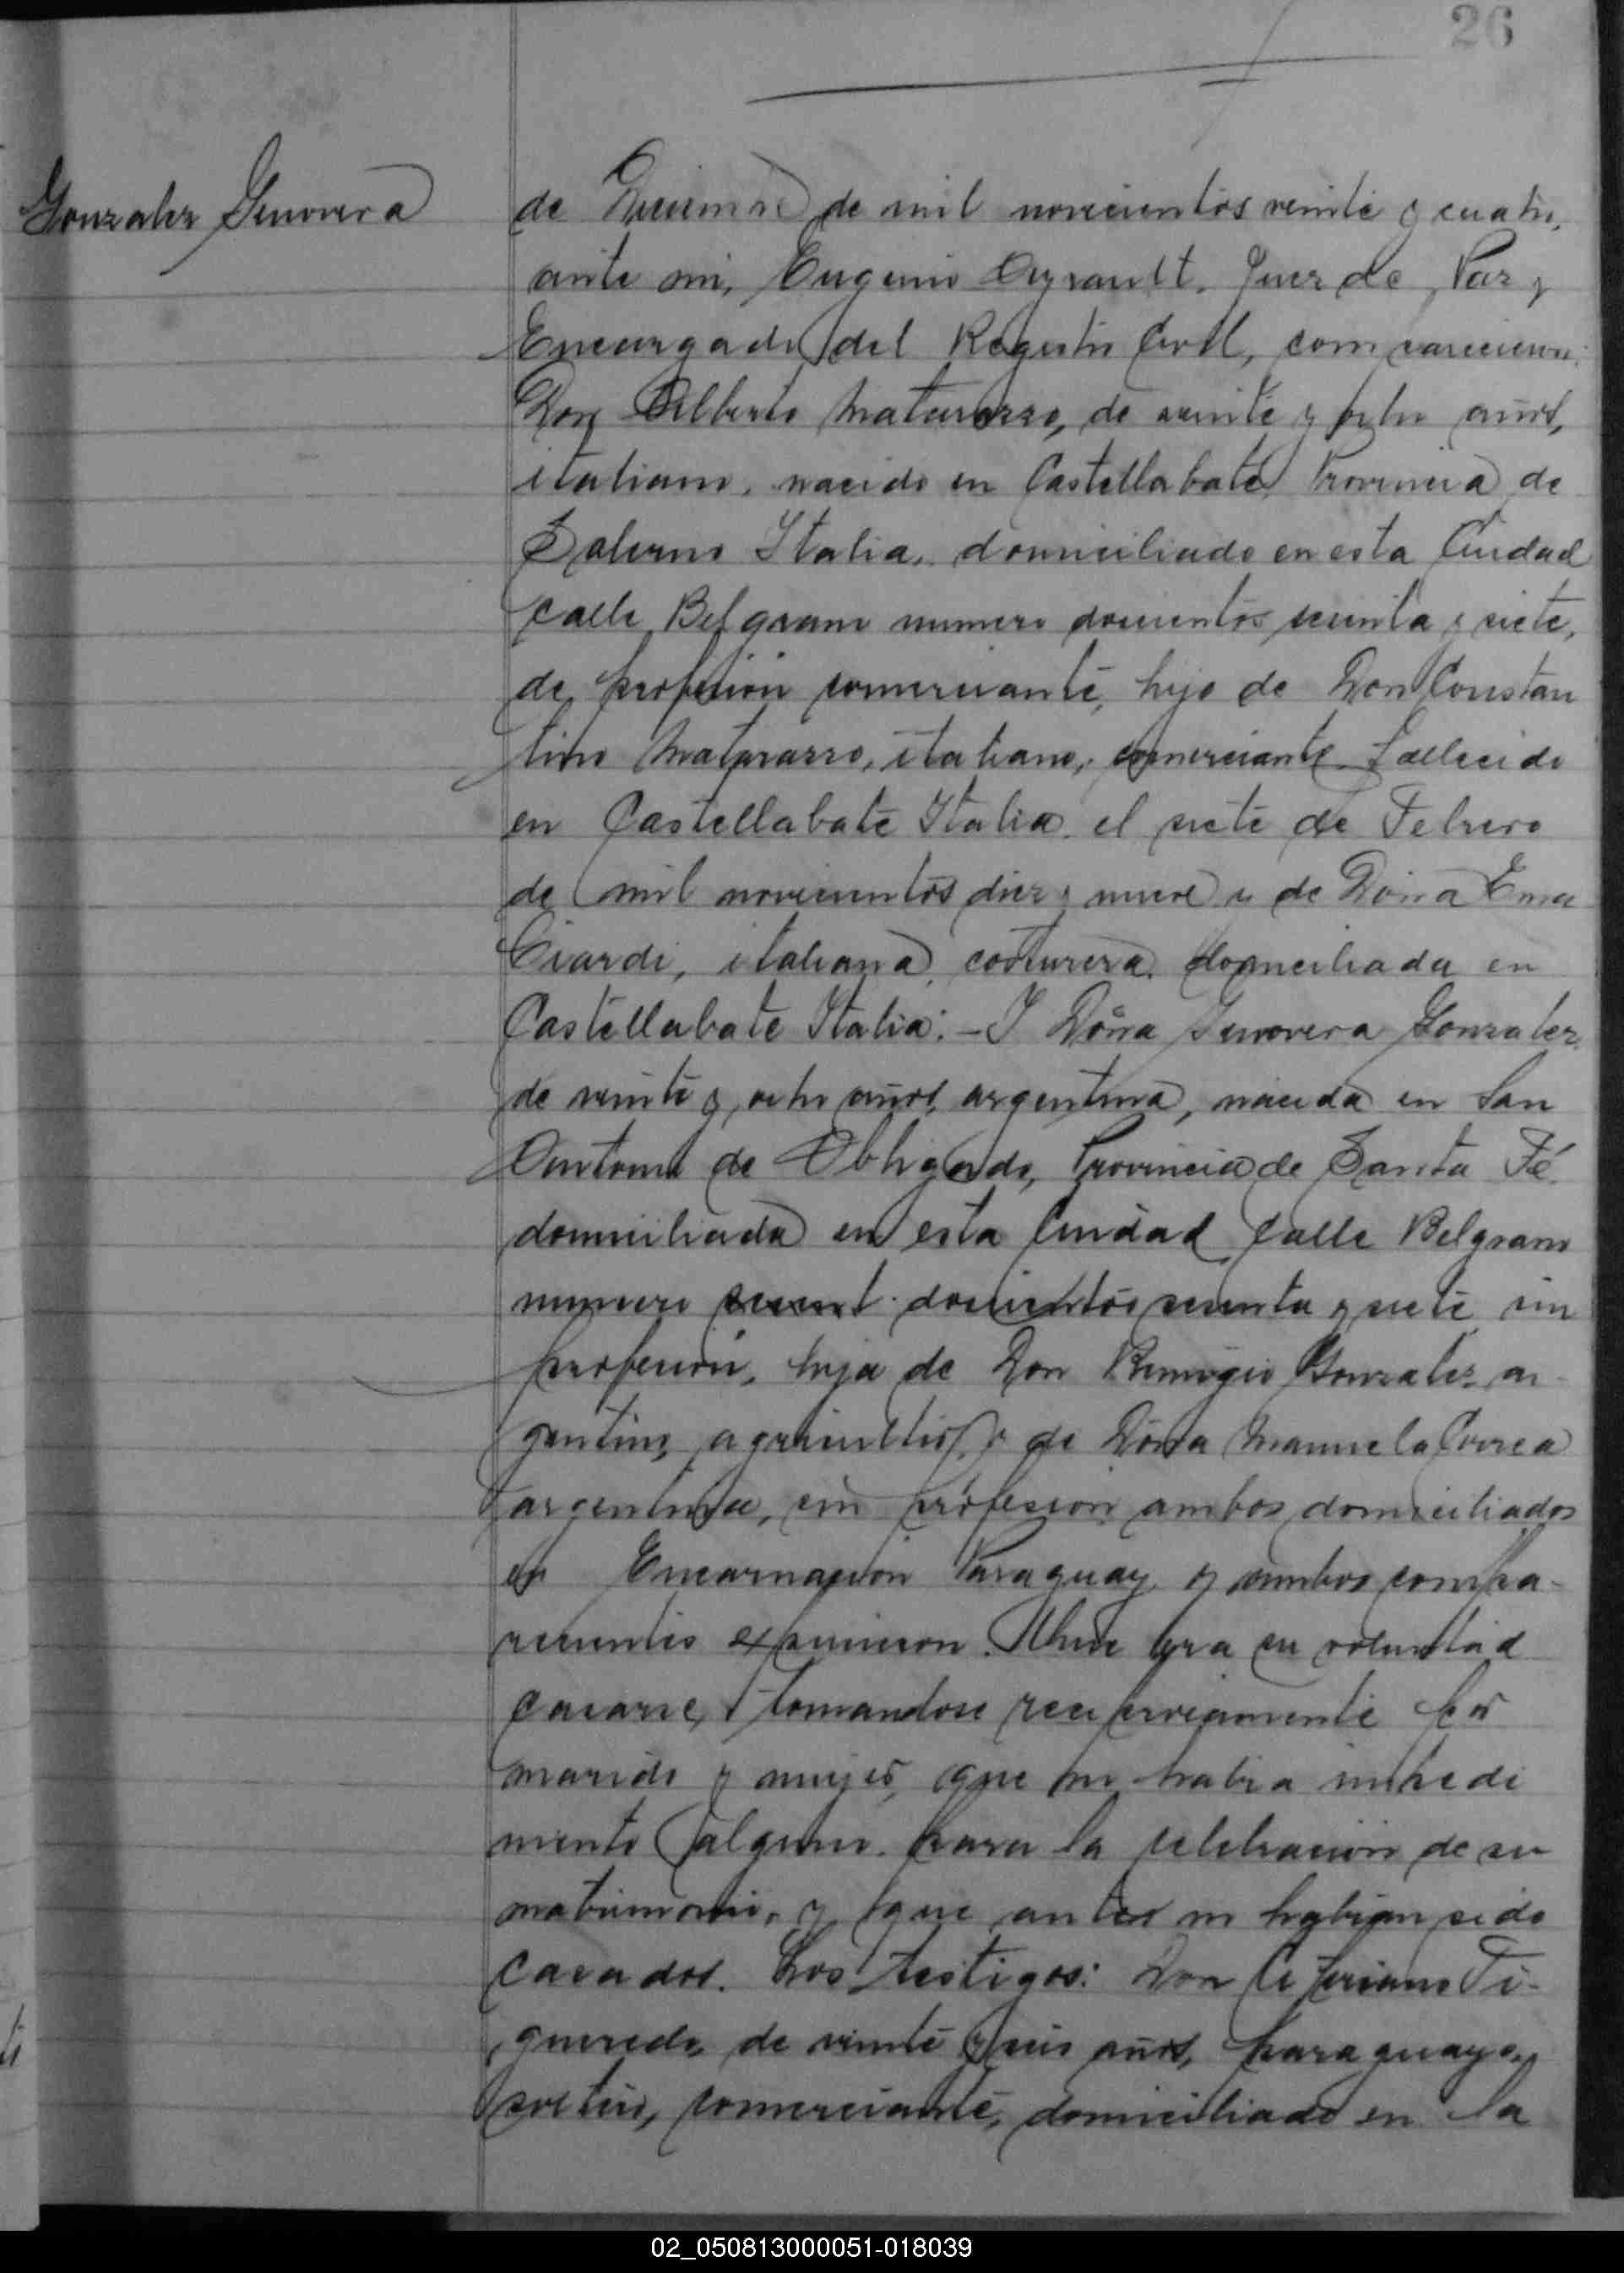 26
Gonzalez Genovera
de Diciembre de mil novecientos veinte y cuatro,
ante mi, Eugenio Ayrault, Juez de Paz y
Encargado del Registro Civil, comparecieron:
Don Alberto Matarazzo, de veinte y ocho años,
italiano, nacido en Castellabate, Provincia de
Salerno Italia, domiciliado en esta Ciudad
calle Belgrano numero doscientos y siete,
de profesion comerciante, hijo de Don Constan
tino Matarazzo, italiano, comerciante fallecido
en Castellabate Italia el siete de Febrero
de mil novecientos diez y nueve y de Doña Ema
Ciardi, italiana, costurera, domiciliada en
Castellabate Italia: - Y Doña Genovera Gonzalez
de veinte y ocho años, argentina, nacida en San
Antonio de Obligado, Provincia de Santa Fé,
domiciliada en esta Ciudad calle Belgrano
numero doscientos y siete sin
profesion, hija de Don Remigio Gonzalez ar-
gentino, agricultor, y de Doña Manuela Correa
argentina, sin profesion ambos domiciliados
en Encarnacion Paraguay y ambos compa-
recientes expusieron: Que era su voluntad
casarse, tomandose reciprocamente por
marido y mujer, que no habia impedi
mento alguno para la celebracion de su
matrimonio, y que antes no habian sido
casados. Los testigos: Don Ceferiano Fi-
gueredo, de veinte y seis años, paraguayo,
soltero, comerciante, domiciliado en la
02_050813000051-018039